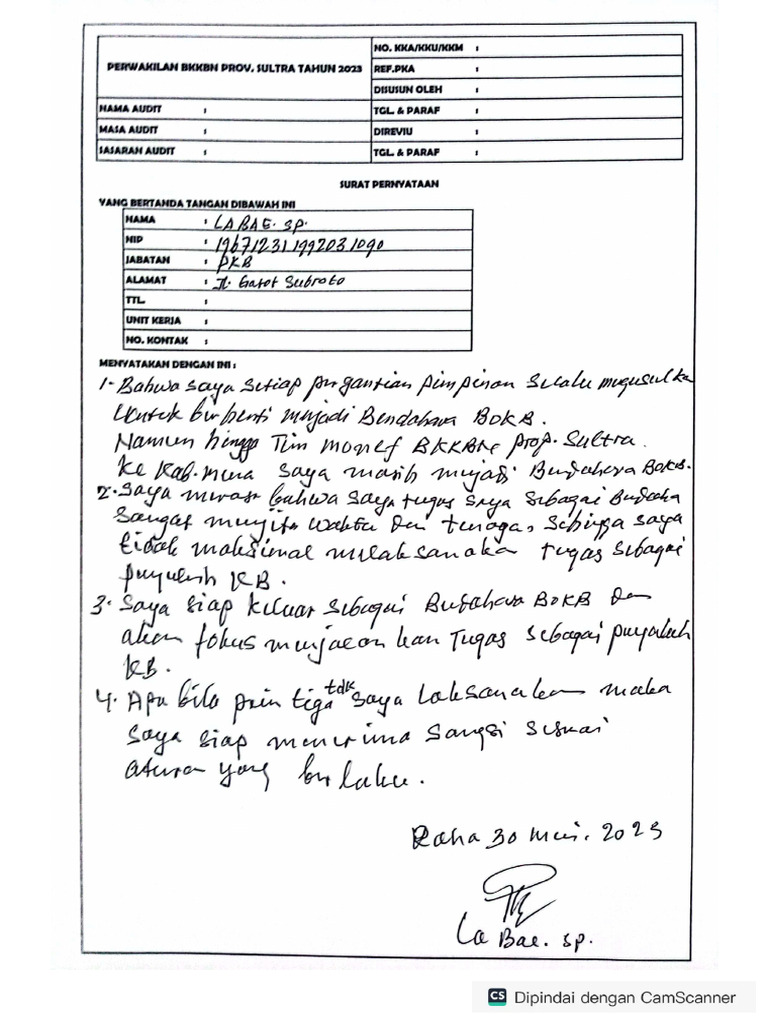 PERWAKILAN BKKBN PROV. SULTRA TAHUN 2023
NO. KKA/KKU/KKM :
REF.PKA :
DISUSUN OLEH :
NAMA AUDIT : TGL. & PARAF :
MASA AUDIT : DIREVIU :
SASARAN AUDIT : TGL. & PARAF :
SURAT PERNYATAAN
YANG BERTANDA TANGAN DIBAWAH INI
NAMA : LA BAE. SP.
NIP : 196712311992031090
JABATAN : PKB
ALAMAT : Jl. Gatot Subroto
TTL :
UNIT KERJA :
NO. KONTAK :
MENYATAKAN DENGAN INI :
1. Bahwa saya setiap pergantian pimpinan selalu mengusulka
untuk berhenti menjadi Bendahara BOKB.
Namun hingga Tim monef BKKBN prop. Sultra.
ke Kab. muna saya masih menjadi Bendahara BOKB.
2. Saya merasa bahwa saya tugas saya sebagai Bendaha
sangat menyita waktu dan tenaga, sehingga saya
tidak maksimal melaksanaka tugas sebagai
penyuluh KB.
3. Saya siap keluar sebagai Bendahara BOKB dan
akan fokus menjalankan Tugas sebagai penyuluh
KB.
4. Apa bila poin tiga tdk saya laksanakan maka
saya siap menerima sangsi sesuai
aturan yang berlaku.
Raha 30 Mei. 2023
La Bae. SP.
CS Dipindai dengan CamScanner